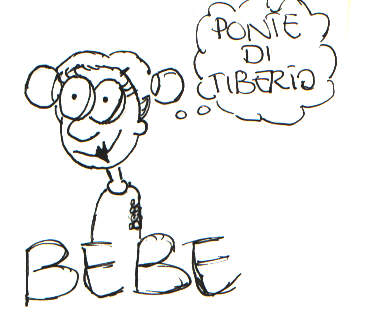 PONTE
DI
TIBERIO
BEBE